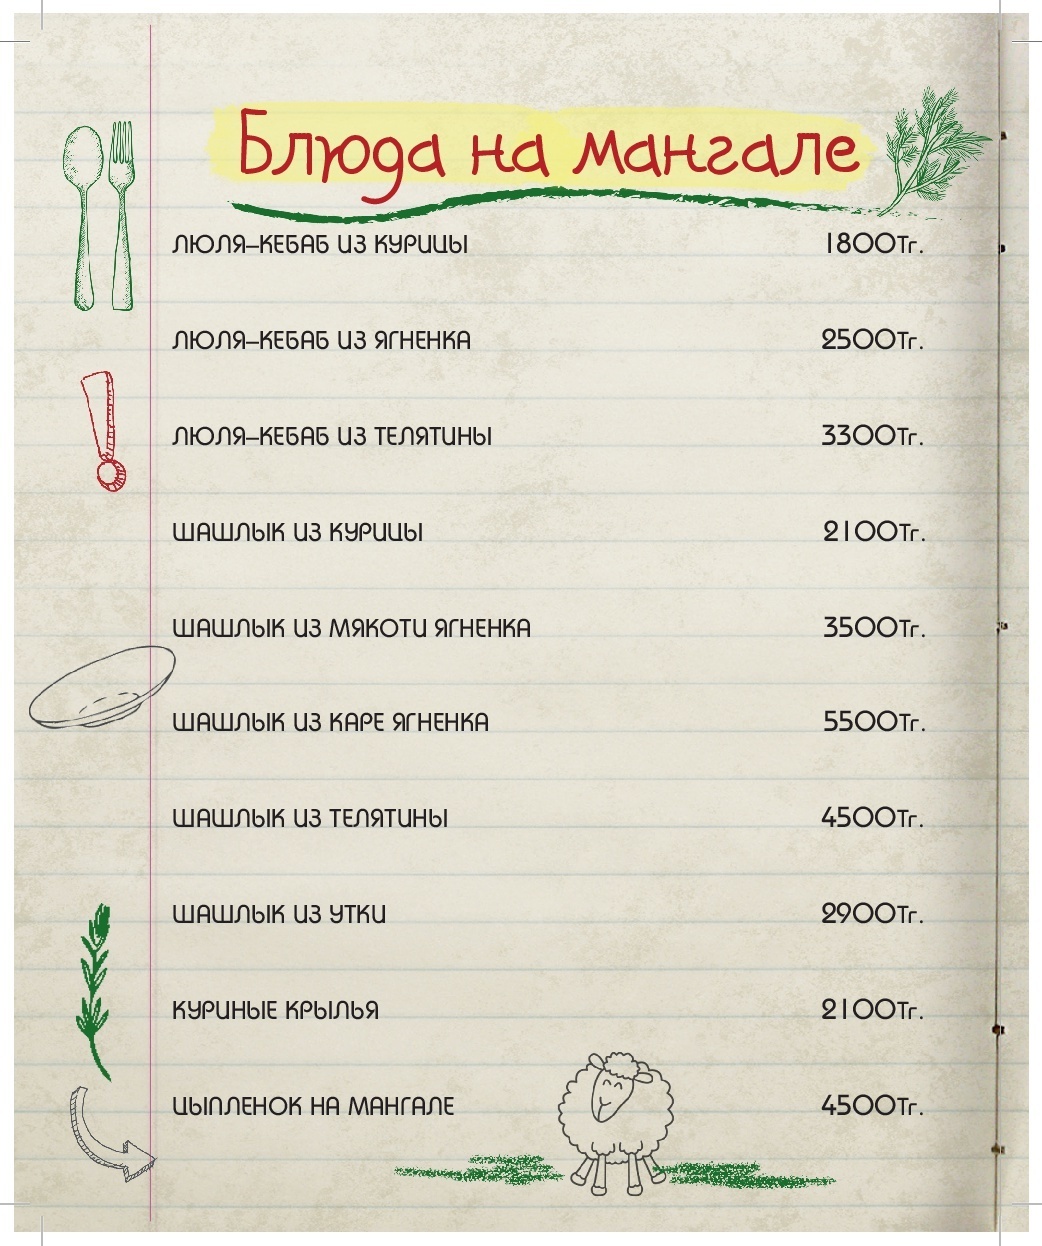 Блюда на мангале
ЛЮЛЯ-КЕБАБ ИЗ КУРИЦЫ 1800Тг.
ЛЮЛЯ-КЕБАБ ИЗ ЯГНЕНКА 2500Тг.
ЛЮЛЯ-КЕБАБ ИЗ ТЕЛЯТИНЫ 3300Тг.
ШАШЛЫК ИЗ КУРИЦЫ 2100Тг.
ШАШЛЫК ИЗ МЯКОТИ ЯГНЕНКА 3500Тг.
ШАШЛЫК ИЗ КАРЕ ЯГНЕНКА 5500Тг.
ШАШЛЫК ИЗ ТЕЛЯТИНЫ 4500Тг.
ШАШЛЫК ИЗ УТКИ 2900Тг.
КУРИНЫЕ КРЫЛЬЯ 2100Тг.
ЦЫПЛЕНОК НА МАНГАЛЕ 4500Тг.